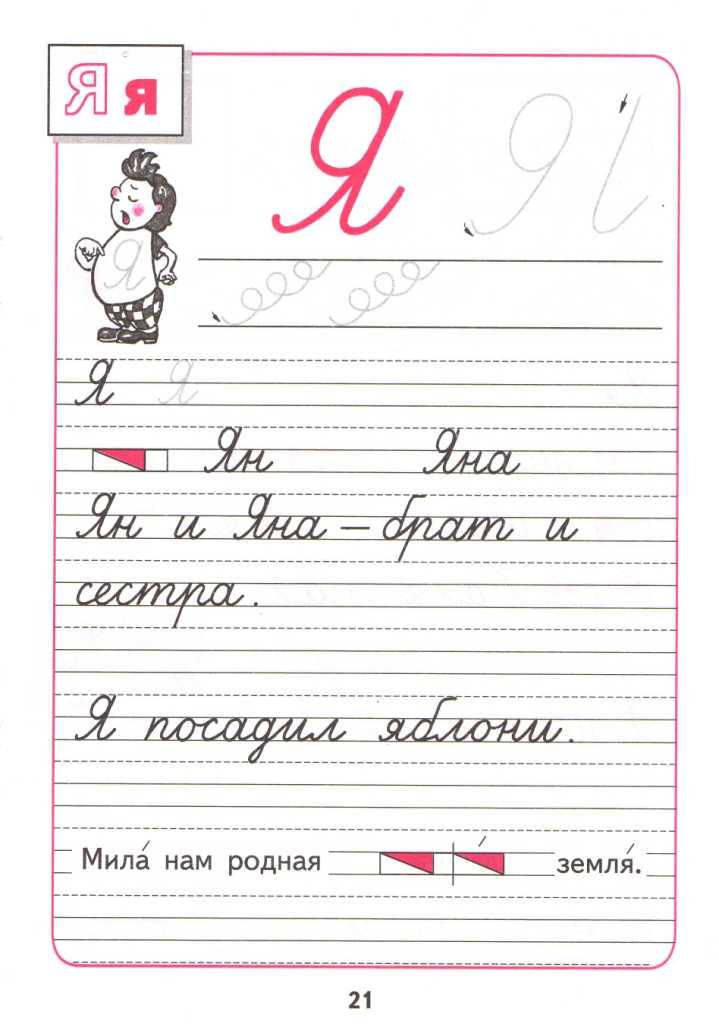 Я я
Я Я
Я
Я Я
Ян Яна
Ян и Яна – брат и
сестра.
Я посадил яблони.
Мила́ нам родная земля́.
21